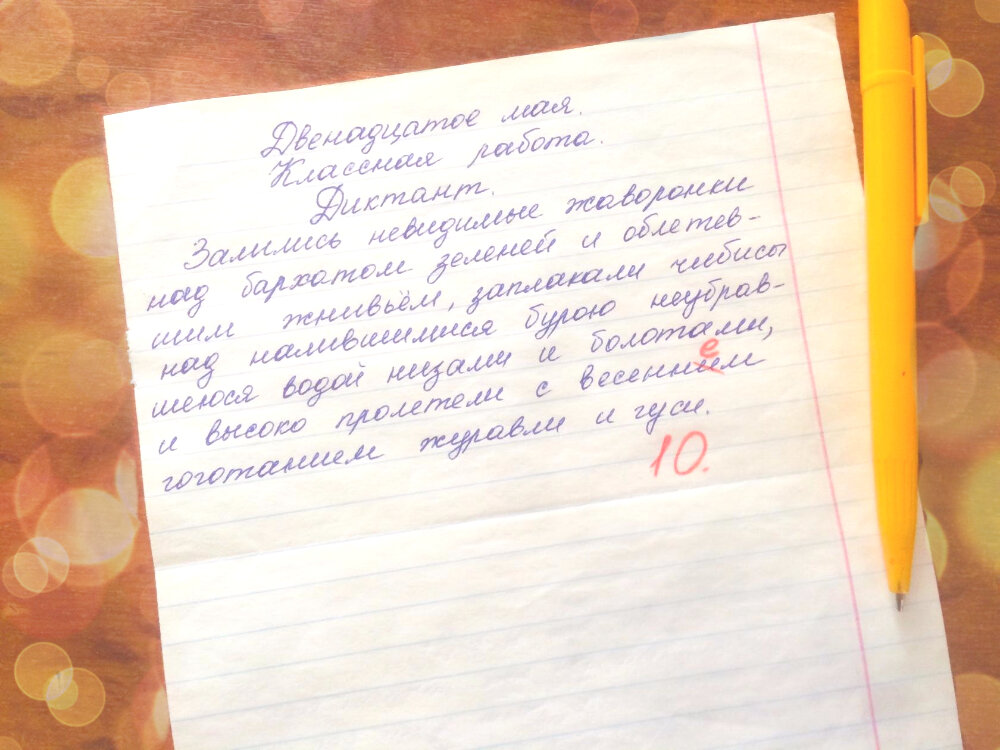 Двенадцатое мая.
Классная работа.
Диктант.
Залились невидимые жаворонки
над бархатом зеленей и облетев-
шим жнивьём, заплакали чибисы
над налившимися бурою неубрав-
шеюся водой низами и болотами,
и высоко пролетели с весенним
е
гоготанием журавли и гуси.
10.